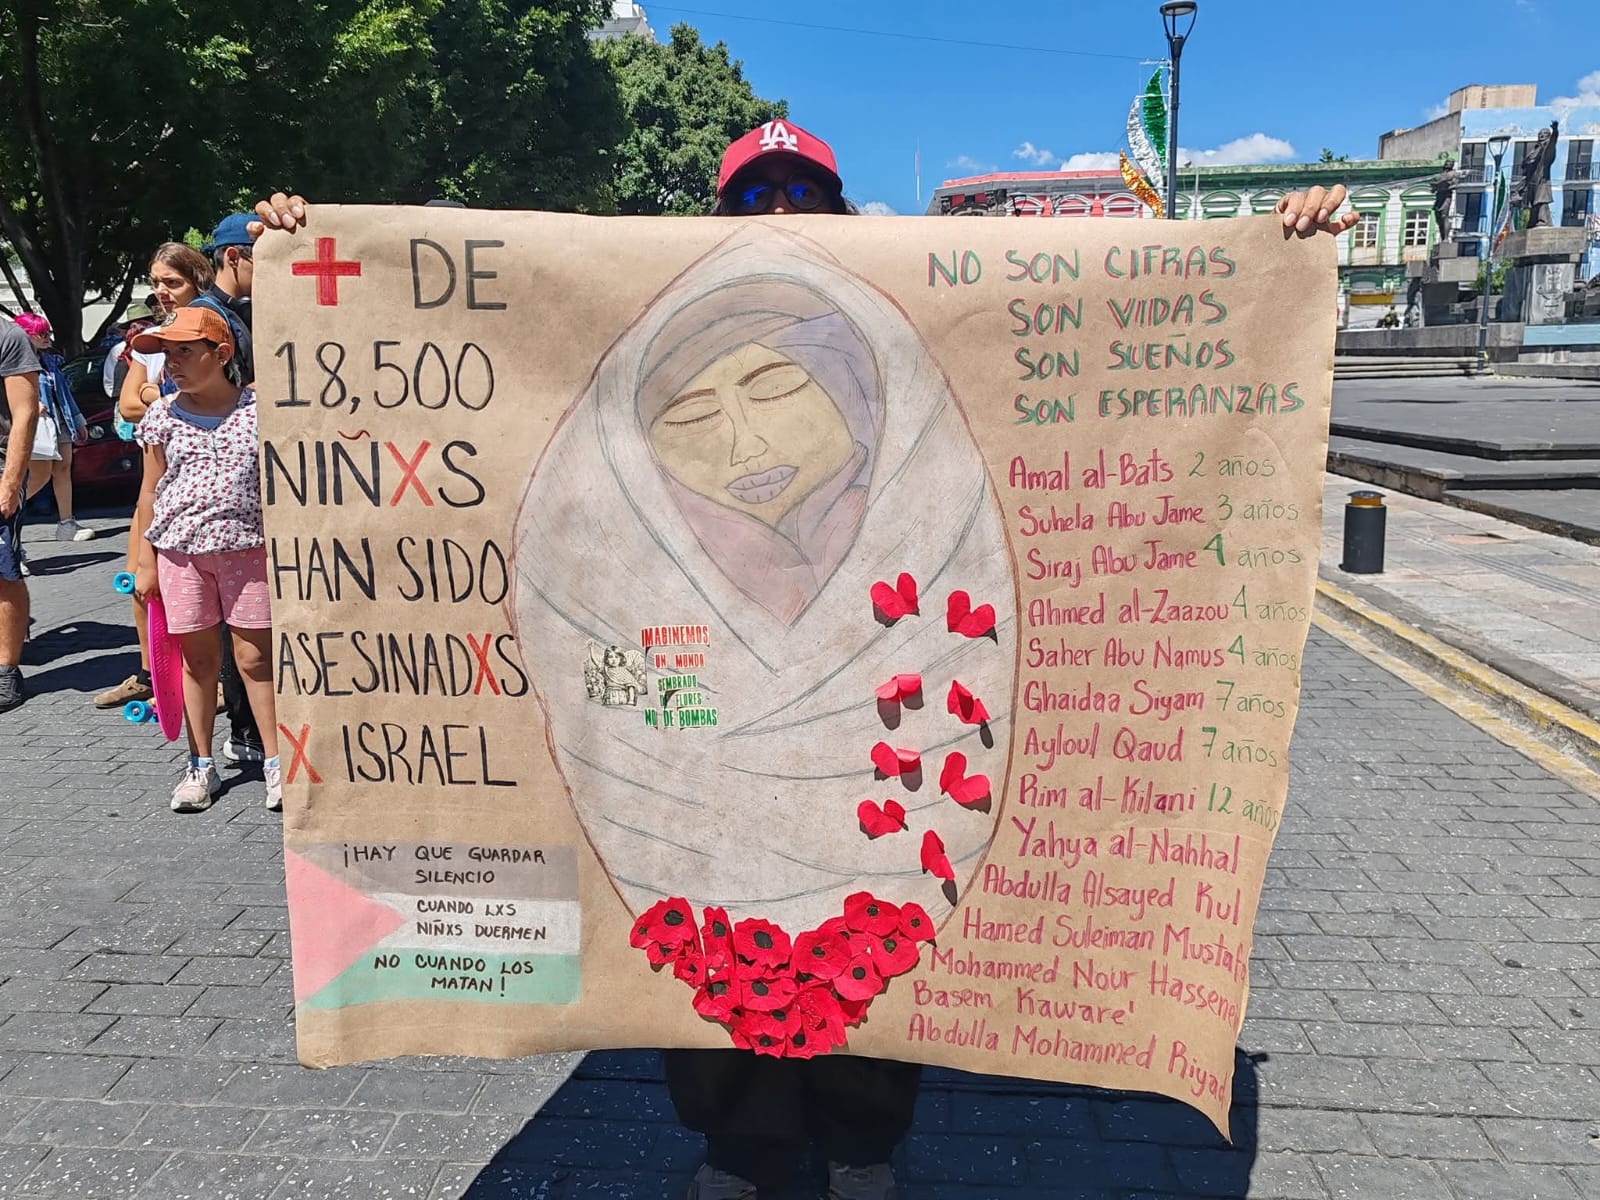 LA
+ DE
18,500
NIÑXS
HAN SIDO
ASESINADXS
X ISRAEL
¡HAY QUE GUARDAR
SILENCIO
CUANDO LXS
NIÑXS DUERMEN
NO CUANDO LOS
MATAN!
IMAGINEMOS
UN MUNDO
SEMBRADO
DE FLORES
NO DE BOMBAS
NO SON CIFRAS
SON VIDAS
SON SUEÑOS
SON ESPERANZAS
Amal al-Bats 2 años
Suhela Abu Jame 3 años
Siraj Abu Jame 4 años
Ahmed al-Zaazou 4 años
Saher Abu Namus 4 años
Ghaidaa Siyam 7 años
Ayloul Qaud 7 años
Rim al-Kilani 12 años
Yahya al-Nahhal
Abdulla Alsayed Kul
Hamed Suleiman Mustafa
Mohammed Nour Hassene
Basem Kaware'
Abdulla Mohammed Riyad